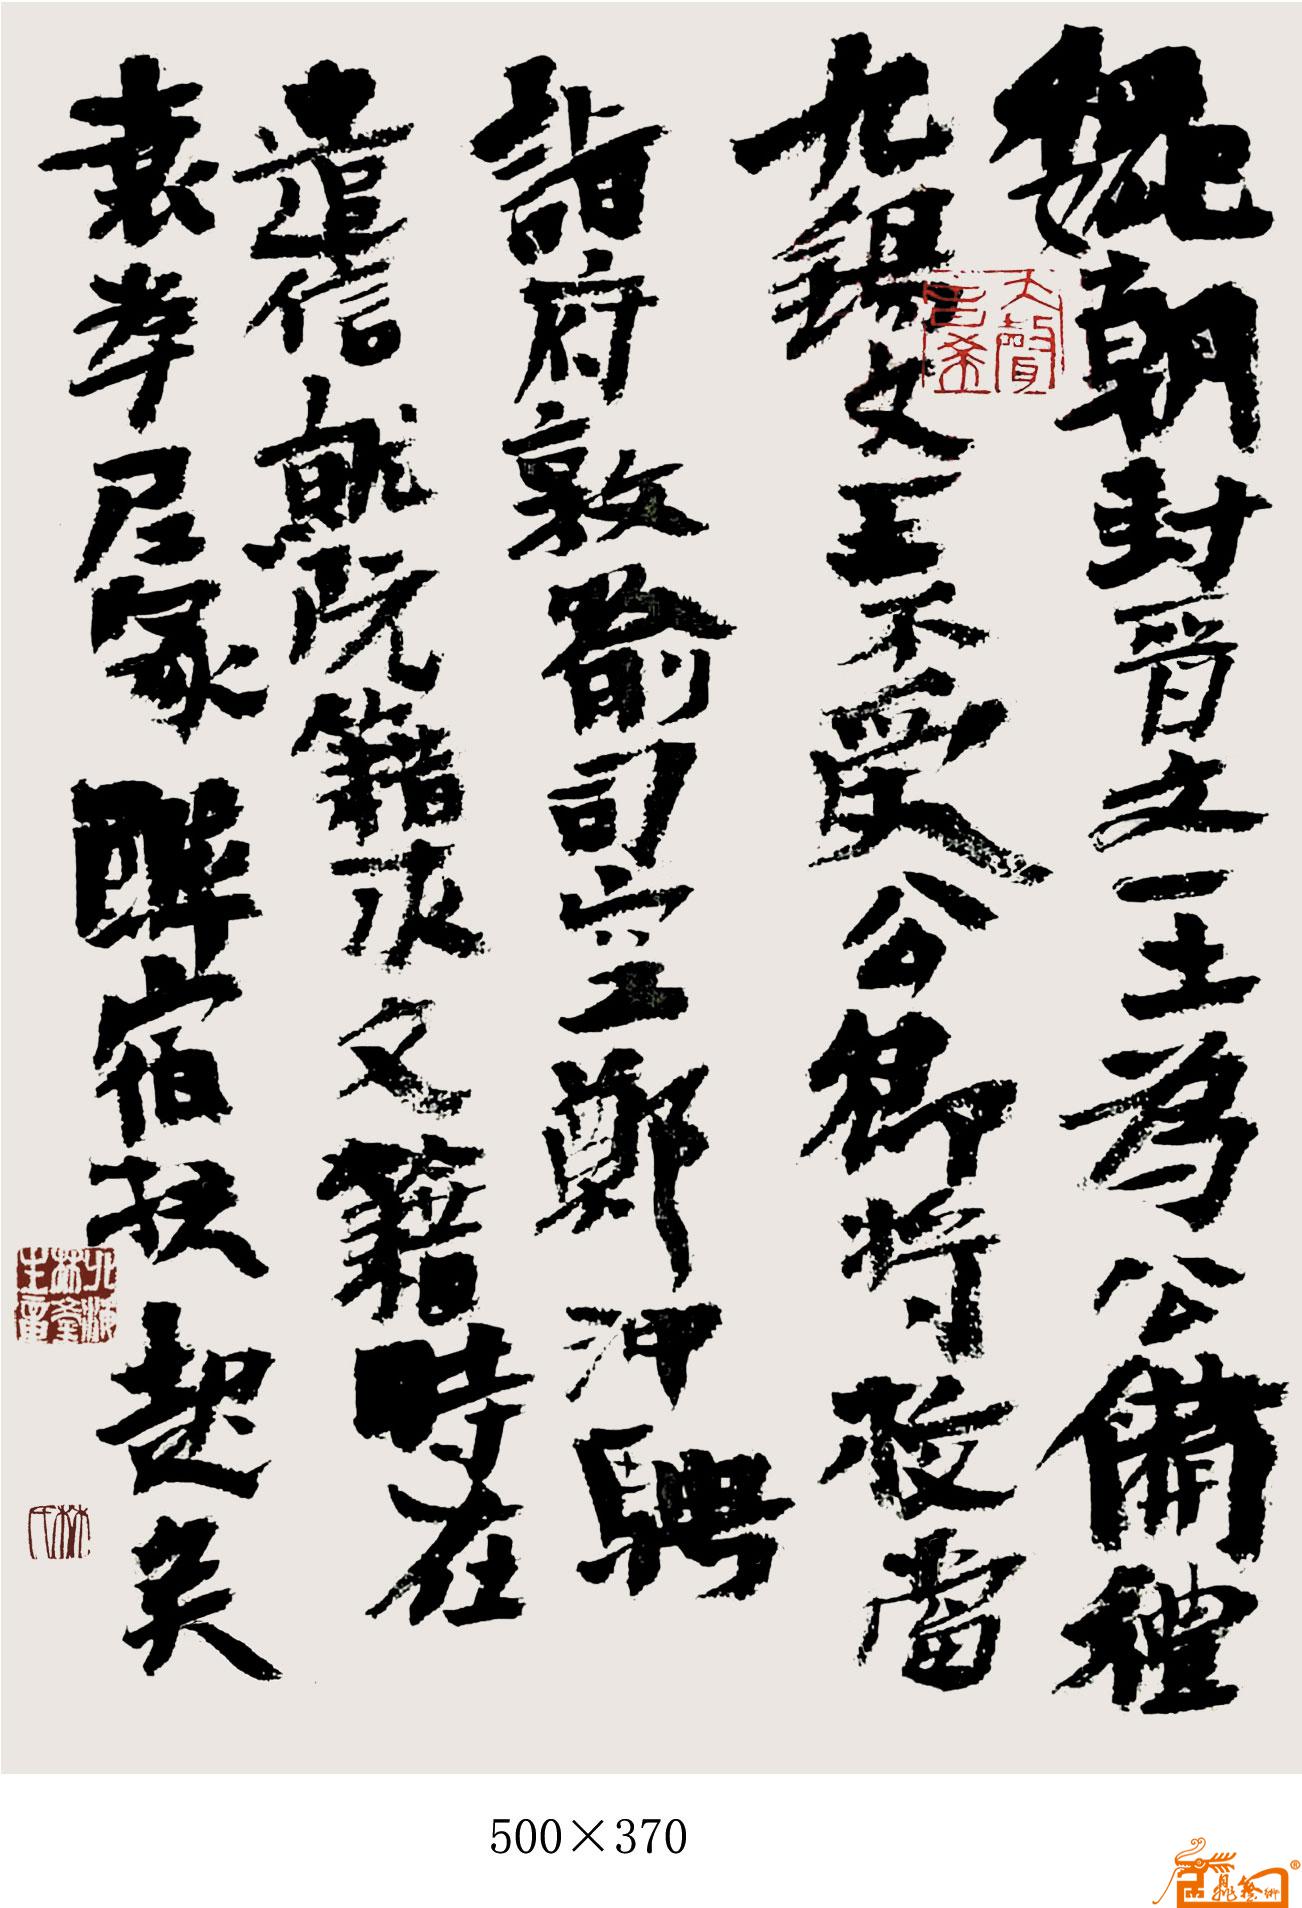 魏朝封晉文王為公備禮
九錫文王不受公卿将校當
詣府敦喻司空鄭沖騁
遣信就阮籍求文籍時在
袁孝尼家醉宿扶起矣
大音希聲
林氏
500×370